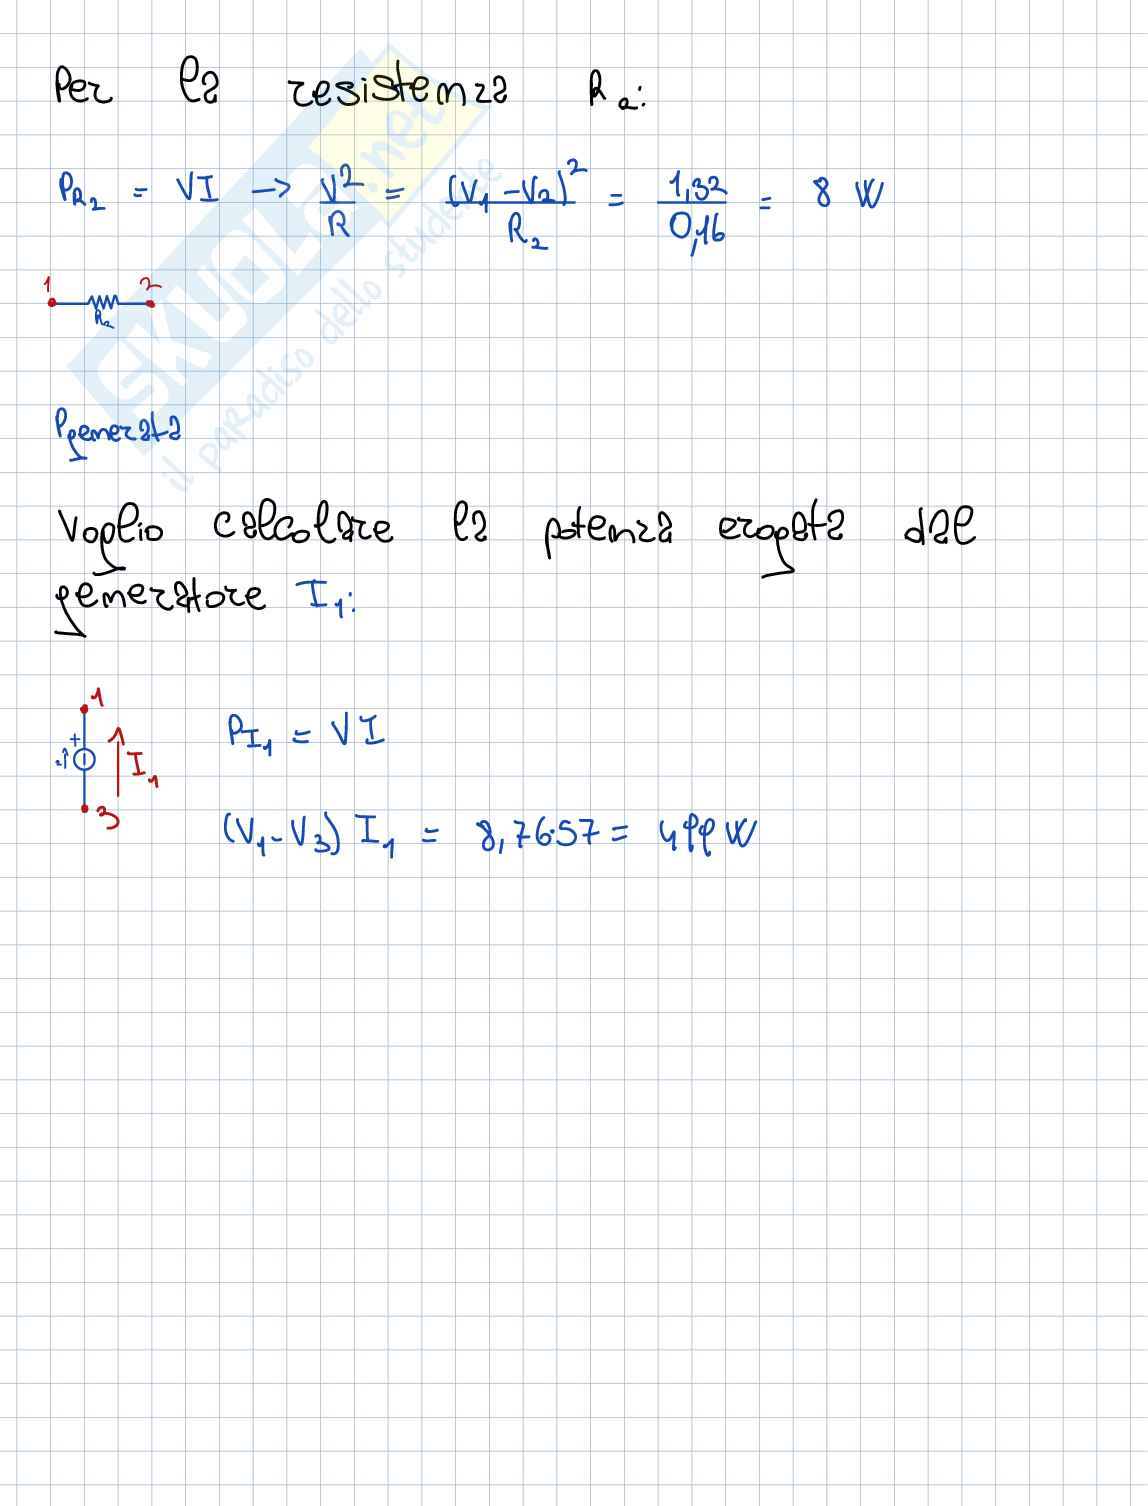 Per la resistenza R₂:
P_R₂ = VI → V²/R = (V₁ - V₂)²/R₂ = 1,32/0,16 = 8 W
1 2
R₂
Pgenerata
Voglio calcolare la potenza erogata dal
generatore I₁:
1
+
I₁
3
P_I₁ = VI
(V₁-V₃) I₁ = 8,76·57 = 499 W
SKUOLA.net
il paradiso dello studente